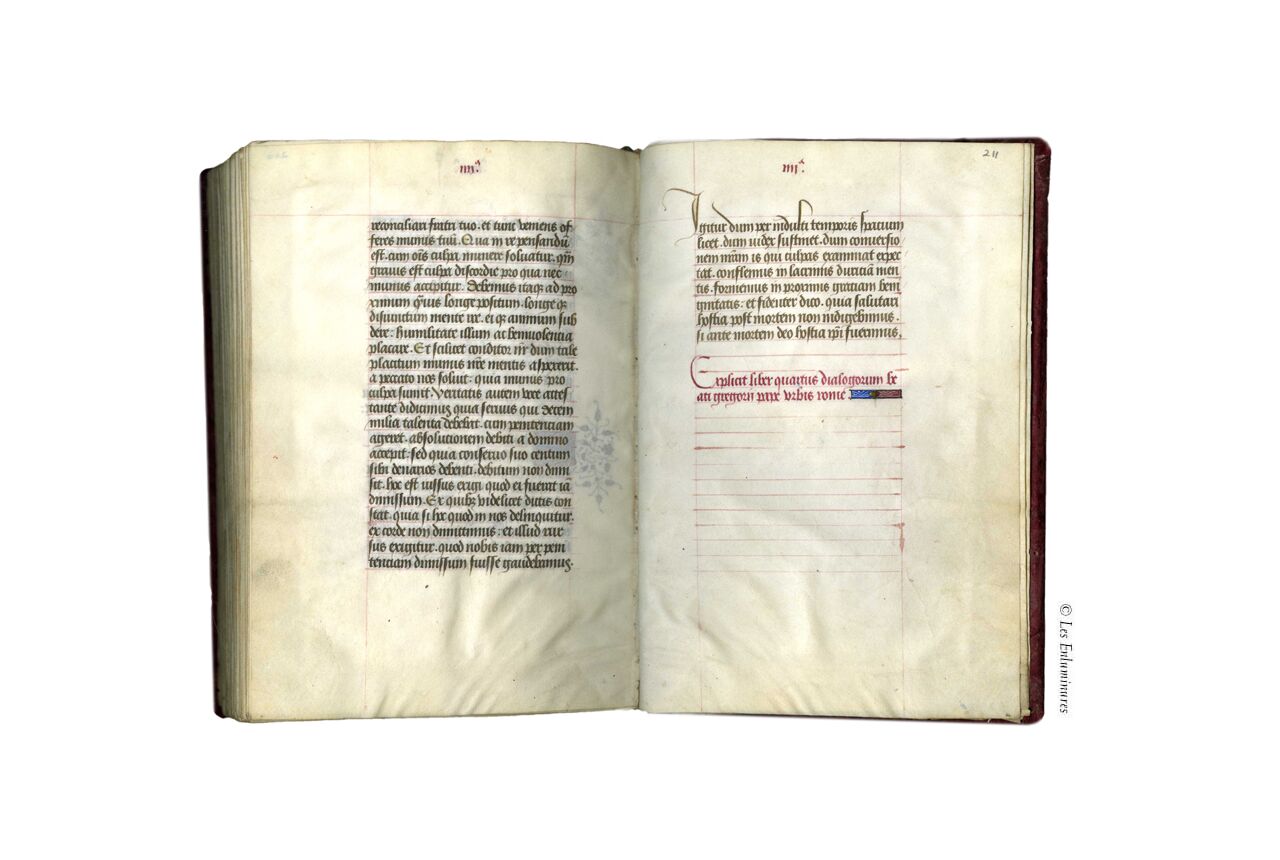 iiii.a
reconciliari fratri tuo. et tunc veniens of
feres munus tuū. Qua in re pensandū
est. cum oīs culpa munere soluatur. qm̄
grauis est culpa discordie pro qua nec
munus accipitur. Debemus itaqȝ ad pro
ximum q̄uis longe positum. longe qȝ
disiunctum mente ire. ei qȝ animum sub
dere: humilitate illum ac beniuolentia
placare. Et scilicet conditor nr̄ dum tale
placitum munus nr̄e mentis aspexerit.
a peccato nos soluit: quia munus pro
culpa sumit. Veritatis autem voce attes
tante didicimus quia seruus qui decem
milia talenta debebat. cum penitentiam
ageret. absolutionem debiti a domino
accepit: sed quia conseruo suo centum
sibi denarios debenti. debitum non dimi
sit. hoc est iussus exigi quod ei fuerat iā
dimissum. Ex quibȝ videlicet dictis con
stat. quia si hoc quod in nos delinquitur.
ex corde non dimittimus: et illud rur
sus exigitur. quod nobis iam per peni
tenciam dimissum fuisse gaudebamus.
211
iiii.a
Igitur dum per indulti temporis spacium
licet. dum iudex sustinet. dum conuersio
nem nr̄am is qui culpas examinat expec
tat. conflemus in lacrimis duriciā men
tis. formemus in proximis gratiam beni
gnitatis: et fidenter dico. quia salutari
hostia post mortem non indigebimus.
si ante mortem deo hostia ip̄i fuerimus.
Explicit liber quartus dialogorum be
ati gregorij pape vrbis rome.
© Les Enluminures